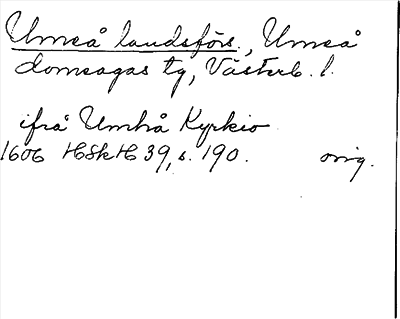 Umeå landsförs., Umeå
domsagas tg, Västerb. l.
ifrå Umhå Kyrkio
1606 HSkH 39, s. 190. orig.